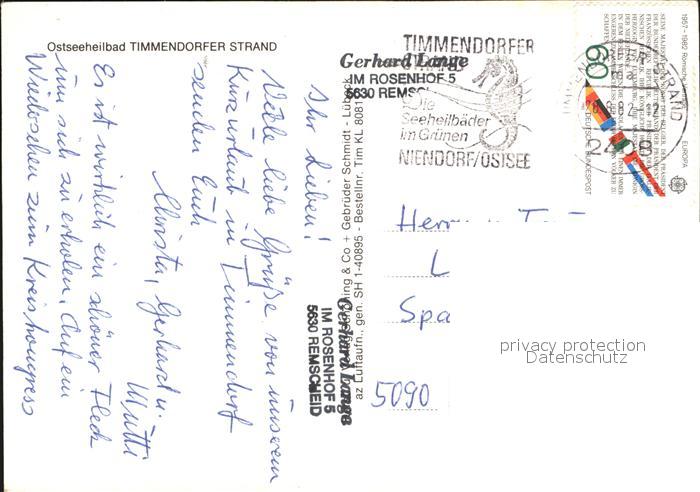 Ostseeheilbad TIMMENDORFER STRAND
Ihr Lieben!
Viele liebe Grüße von unserem
Kurzurlaub in Timmendorf
senden Euch
Christa, Gerhard u.
Mutti
Es ist wirklich ein schöner Fleck
um sich zu erholen. Auf ein
Wiedersehen zum Kreiskongress
Gerhard Lange
IM ROSENHOF 5
5630 REMSCHEID
Gerhard Lange
IM ROSENHOF 5
5630 REMSC
& Co + Gebrüder Schmidt - Lübeck
az Luftaufn., gen. SH 1-40895 - Bestellnr. Tim KL 8081
TIMMENDORFER
Die
Seeheilbäder
im Grünen
NIENDORF/OSTSEE
60
DEUTSCHE BUNDESPOST
EUROPA
2408
Herrn
L
Spa
5090
privacy protection
Datenschutz